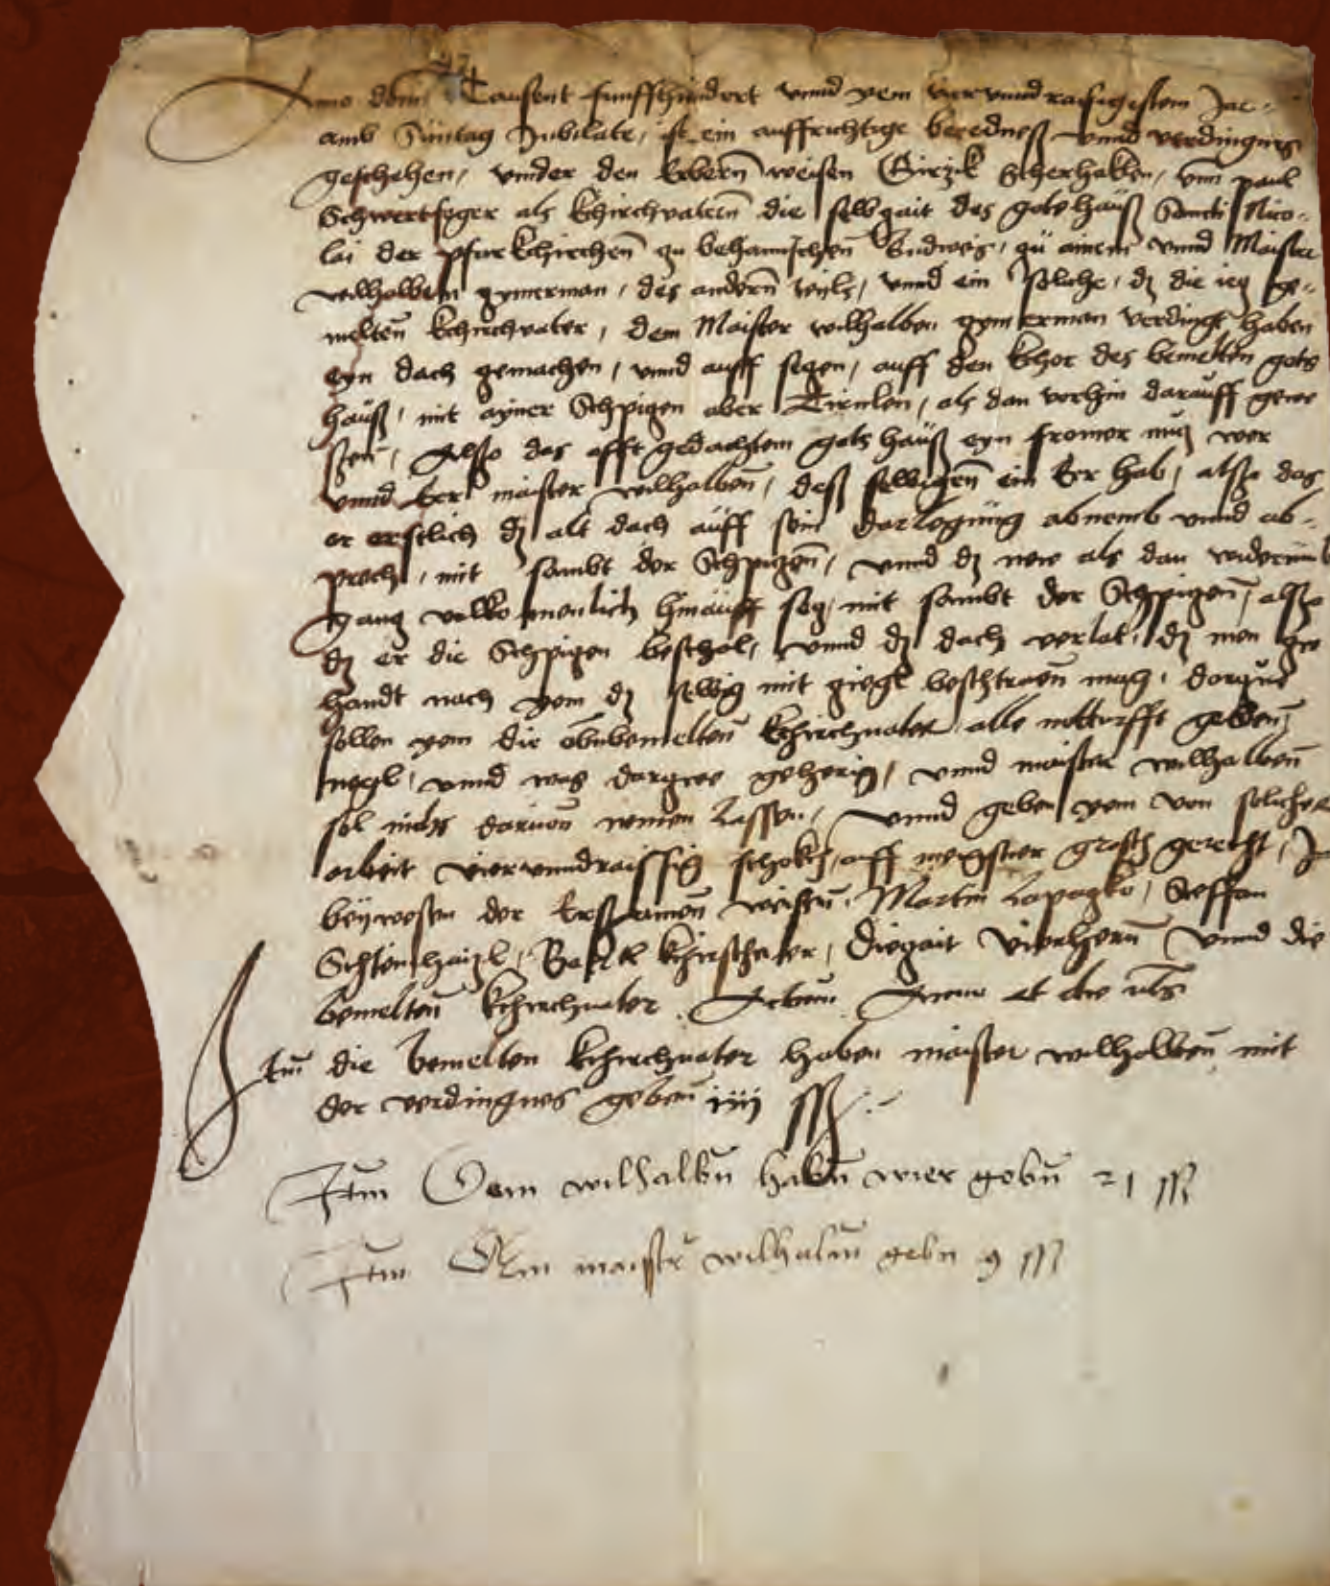 Anno dom Tausent funffhundert vnnd yem viervnndraisigestem Jar
amb Suntag Jubilate, ist ein auffrichtige beredneß vnnd verdingnus
geschehen, vnder den Erbern weisen Girzik Scherhaken, vnn paul
Schwertfeger als Khirchvatern die selbzait des gotshauß Sancti Nico-
lai der pfarkhirchen zu behamischen Budweis, zu ainem vnnd Maister
wilhalben zymerman, des andern teils, vnnd ein solliche, dz die iez ge-
melten Khirchvater, dem Maister wilhalben zymerman verdingt haben
eyn dach zemachen, vnnd auff sezen, auff den Khor des bemelten gots
hauß, mit ayner Schpizen aber Tirnlen, als dan vorhin darauff gewe
sen, Also das offt gedachtem gotshauß eyn fromer nuz wer
vnnd er maister wilhalben, deß selbigen ein Er hab, alßo das
er erstlich dz alt dach auff sein darlegung abnemb vnnd ab-
prech, mit sambt der Schpizen, vnnd dz new als dan widerumb
ganz volkomenlich hinauff sez, mit sambt der Schpizen, alßo
dz er die Schpizen beschal, vnnd dz dach verlat, dz man zw
handt nach yem dz selbig mit ziegl beschtraen mag, darzue
sollen yem die obnbemelten Khirchvater alle notturfft geben,
negl, vnnd was darzue geherig, vnnd maister wilhalben
sol nichs daruon nemen lassen, vnnd geben yem von solicher
arbeit viervnndraissig schokh, auff meyssner grosch gerecht, In
beywesen der Erssamen weisen, Martin Lapazko, Steffan
Schtenhaizl, Bartl Khirschner, diezait vierhern vnnd die
bemelten Khirchvater. Actum Anno et die uts
Itm die bemelten Khirchvater haben maister wilhalben mit
der verdingnus geben iiij ßß
Itm Dem wilhalbn habn wier gebn 21 ßß
Itm Dem maistr wilhalm gebn 9 ßß